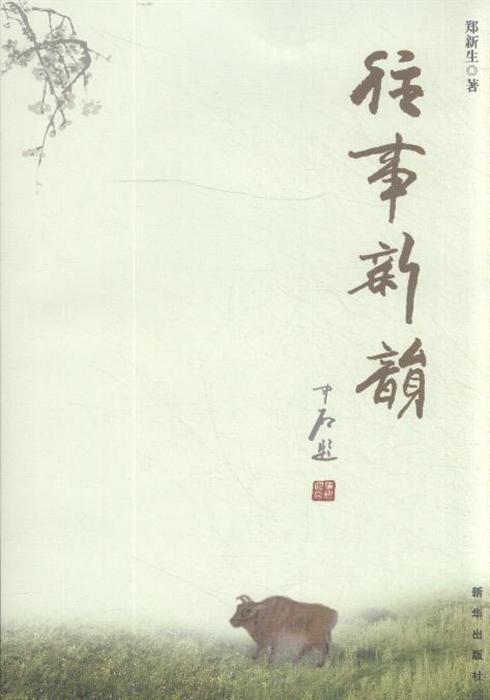 郑新生◎著
往事新韻
中石题
新华出版社